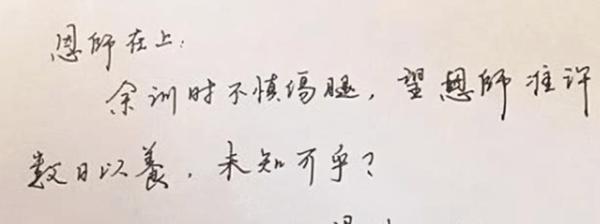 恩师在上:
余训时不慎傷腿,望恩师准许
数日以養,未知可乎?